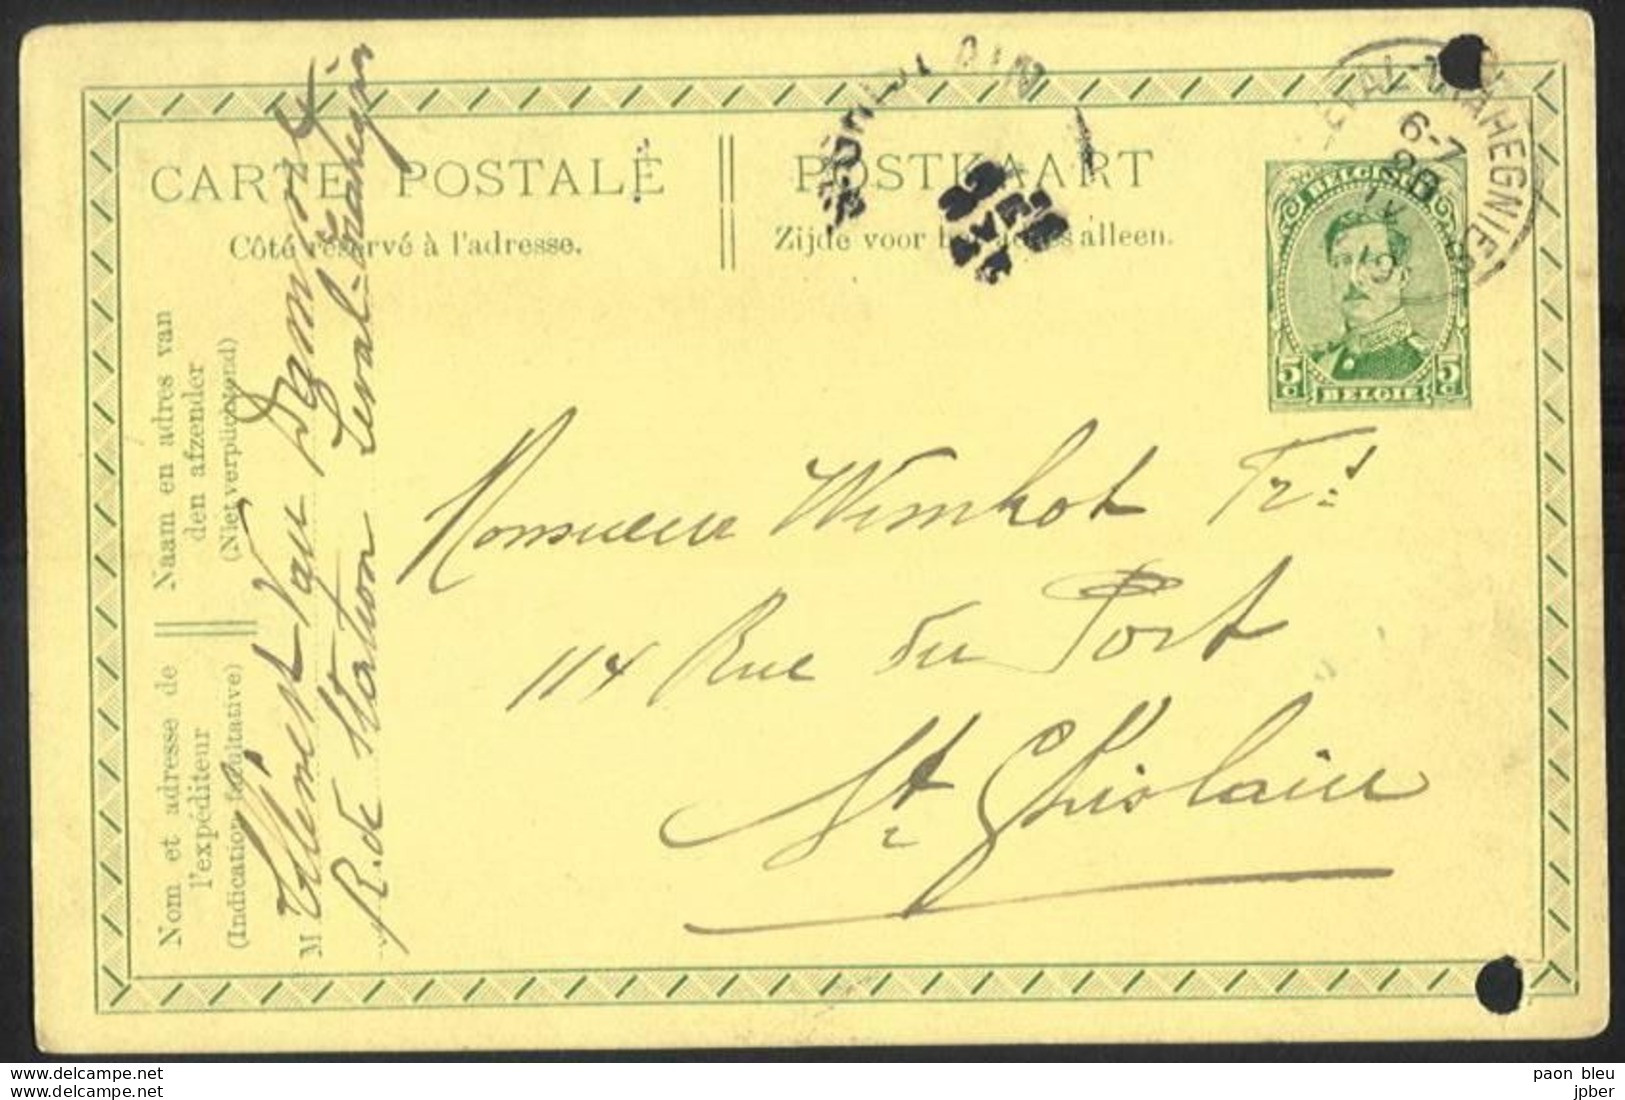 CARTE POSTALE
Côté réservé à l'adresse.
POSTKAART
Zijde voor het adres alleen.
BELGIQUE
5 C
5 C
BELGIE
6-7
28
IV
19
Monsieur Wimhot Frs
114 Rue du Port
St Ghislain
Naam en adres van
den afzender
(Niet verplichtend)
Nom et adresse de
l'expéditeur
(Indication facultative)
M Clément-Van Damme
R. de Station Leval-Trahegnies
paon bleu
jpber
www.delcampe.net
www.delcampe.net